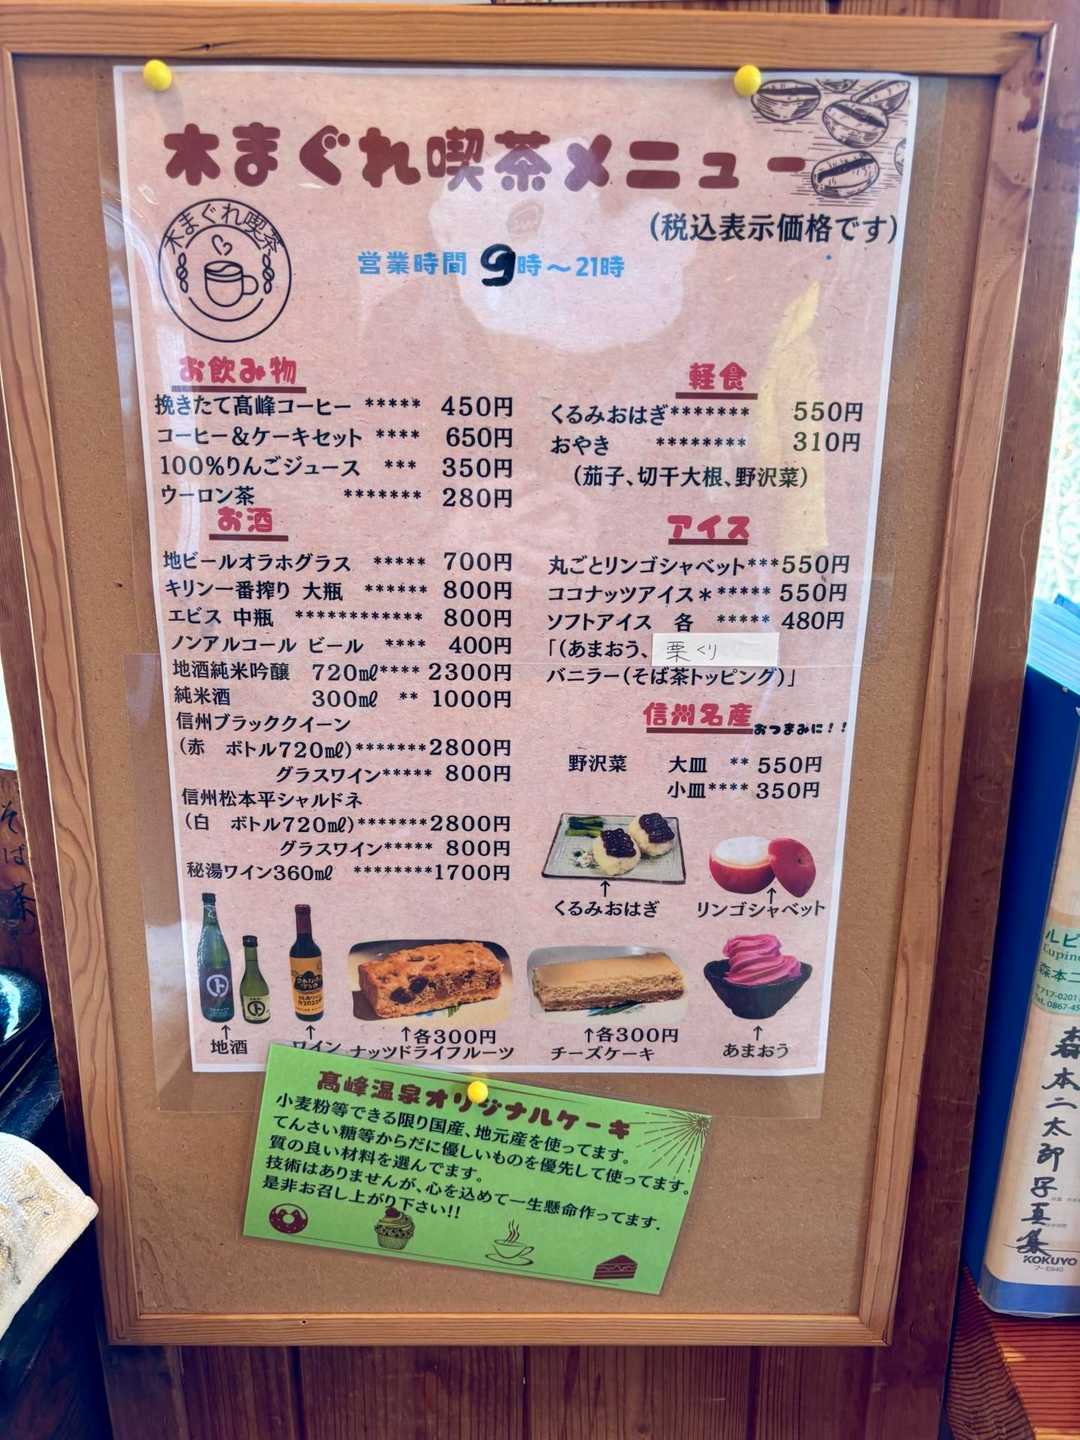 木まぐれ喫茶メニュー
(税込表示価格です)
木まぐれ喫茶
営業時間 9時～21時
お飲み物
挽きたて髙峰コーヒー ***** 450円
コーヒー＆ケーキセット **** 650円
100%りんごジュース *** 350円
ウーロン茶 ******* 280円
お酒
地ビールオラホグラス ***** 700円
キリン一番搾り 大瓶 ****** 800円
エビス 中瓶 ************ 800円
ノンアルコール ビール **** 400円
地酒純米吟醸 720㎖**** 2300円
純米酒 300㎖ ** 1000円
信州ブラッククイーン
(赤 ボトル720㎖)*******2800円
グラスワイン***** 800円
信州松本平シャルドネ
(白 ボトル720㎖)*******2800円
グラスワイン***** 800円
秘湯ワイン360㎖ ********1700円
軽食
くるみおはぎ******* 550円
おやき ******** 310円
(茄子、切干大根、野沢菜)
アイス
丸ごとリンゴシャベット***550円
ココナッツアイス＊***** 550円
ソフトアイス 各 ***** 480円
「(あまおう、栗くり
バニラー(そば茶トッピング)」
信州名産おつまみに！！
野沢菜 大皿 ** 550円
小皿**** 350円
↑
くるみおはぎ
↑
リンゴシャベット
↑
地酒
↑
ワイン
↑各300円
ナッツドライフルーツ
↑各300円
チーズケーキ
↑
あまおう
髙峰温泉オリジナルケーキ
小麦粉等できる限り国産、地元産を使ってます。
てんさい糖等からだに優しいものを優先して使ってます。
質の良い材料を選んでます。
技術はありませんが、心を込めて一生懸命作ってます.
是非お召し上がり下さい!!
そば茶
ルピ
Lupin
森本二
〒717-0201
TEL 0867-45
森本二太郎写真集
KOKUYO